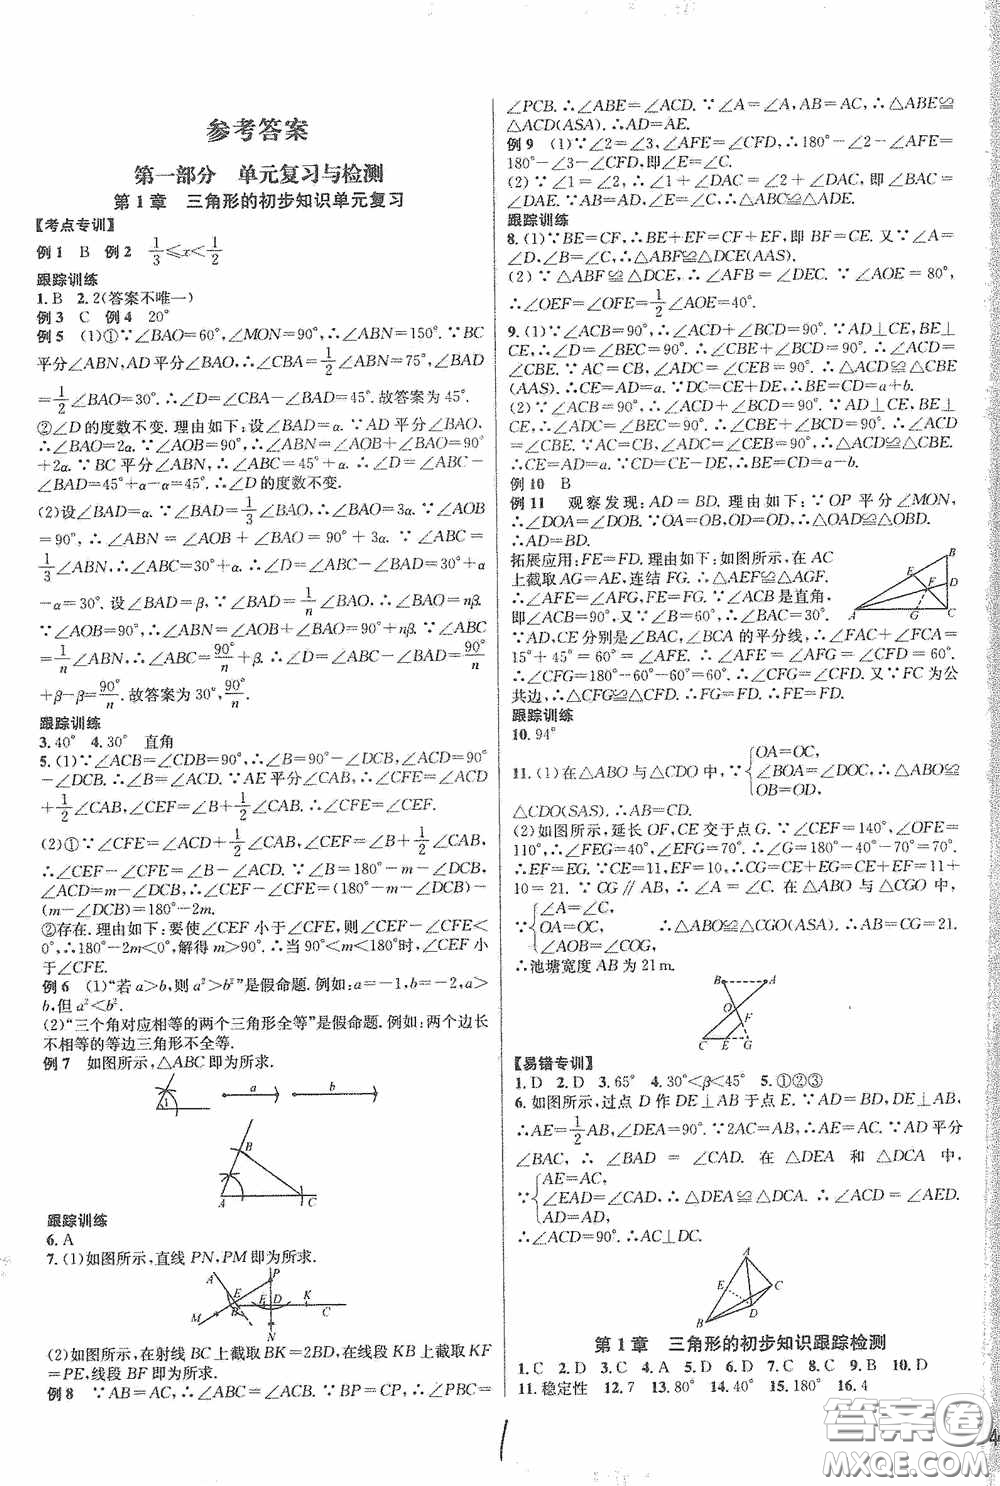 参考答案
第一部分 单元复习与检测
第1章 三角形的初步知识单元复习
【考点专训】
例1 B 例2 1/3≤x<1/2
跟踪训练
1. B 2. 2(答案不唯一)
例3 C 例4 20°
例5 (1)①∵∠BAO=60°,∠MON=90°,∴∠ABN=150°. ∵BC
平分∠ABN,AD平分∠BAO,∴∠CBA=1/2∠ABN=75°,∠BAD=
1/2∠BAO=30°. ∴∠D=∠CBA-∠BAD=45°. 故答案为45°.
②∠D的度数不变. 理由如下:设∠BAD=α. ∵AD平分∠BAO,
∴∠BAO=2α. ∵∠AOB=90°,∴∠ABN=∠AOB+∠BAO=90°
+2α. ∵BC平分∠ABN,∴∠ABC=45°+α. ∴∠D=∠ABC-
∠BAD=45°+α-α=45°. ∴∠D的度数不变.
(2)设∠BAD=α. ∵∠BAD=1/3∠BAO,∴∠BAO=3α. ∵∠AOB
=90°,∴∠ABN=∠AOB+∠BAO=90°+3α. ∵∠ABC=
1/3∠ABN,∴∠ABC=30°+α. ∴∠D=∠ABC-∠BAD=30°+α-α
=30°. 设∠BAD=β. ∵∠BAD=1/n∠BAO,∴∠BAO=nβ.
∵∠AOB=90°,∴∠ABN=∠AOB+∠BAO=90°+nβ. ∵∠ABC
=1/n∠ABN,∴∠ABC=90°/n+β. ∴∠D=∠ABC-∠BAD=90°/n
+β-β=90°/n. 故答案为30°,90°/n.
跟踪训练
3. 40° 4. 30° 直角
5. (1)∵∠ACB=∠CDB=90°,∴∠B=90°-∠DCB,∠ACD=90°
-∠DCB. ∴∠B=∠ACD. ∵AE平分∠CAB,∴∠CFE=∠ACD
+1/2∠CAB,∠CEF=∠B+1/2∠CAB. ∴∠CFE=∠CEF.
(2)①∵∠CFE=∠ACD+1/2∠CAB,∠CEF=∠B+1/2∠CAB,
∴∠CEF-∠CFE=∠B-∠ACD. ∵∠B=180°-m-∠DCB,
∠ACD=m-∠DCB,∴∠CEF-∠CFE=180°-m-∠DCB
-(m-∠DCB)=180°-2m.
②存在. 理由如下:要使∠CEF小于∠CFE,则∠CEF-∠CFE<
0°,∴180°-2m<0°,解得m>90°. ∴当90°<m<180°时,∠CEF小
于∠CFE.
例6 (1)“若a>b,则a²>b²”是假命题. 例如:a=-1,b=-2,a>
b,但a²<b².
(2)“三个角对应相等的两个三角形全等”是假命题. 例如:两个边长
不相等的等边三角形不全等.
例7 如图所示,△ABC即为所求.
1 a b
A B C
跟踪训练
6. A
7. (1)如图所示,直线PN,PM即为所求.
A P E K M B F D C N
(2)如图所示,在射线BC上截取BK=2BD,在线段KC上截取KF
=PE,线段BF即为所求.
例8 ∵AB=AC,∴∠ABC=∠ACB. ∵BP=CP,∴∠PBC=
∠PCB. ∴∠ABE=∠ACD. ∵∠A=∠A,AB=AC,∴△ABE≌
△ACD(ASA). ∴AD=AE.
例9 (1)∵∠2=∠3,∠AFE=∠CFD,∴180°-∠2-∠AFE=
180°-∠3-∠CFD,即∠E=∠C.
(2)∵∠1=∠2,∴∠1+∠DAC=∠2+∠DAC,即∠BAC=
∠DAE.
跟踪训练
8. (1)∵BE=CF,∴BE+EF=CF+EF,即BF=CE. 又∵∠A=
∠D,∠B=∠C,∴△ABF≌△DCE(AAS).
(2)∵△ABF≌△DCE,∴∠AFB=∠DEC. ∵∠AOE=80°,
∴∠OEF=∠OFE=1/2∠AOE=40°.
9. (1)∵∠ACB=90°,∴∠ACD+∠BCE=90°. ∵AD⊥CE,BE⊥
CE,∴∠D=∠BEC=90°. ∴∠CBE+∠BCE=90°. ∴∠ACD=
∠CBE. ∵AC=CB,∠ADC=∠CEB=90°. ∴△ACD≌△CBE
(AAS). ∴CE=AD=a,CD=BE=b. ∴DE=CE+CD=a+b.
(2)∵∠ACB=90°,∴∠ACD+∠BCE=90°. ∵AD⊥CE,BE⊥
CE,∴∠ADC=∠BEC=90°. ∴∠CBE+∠BCE=90°. ∴∠ACD
=∠CBE. ∵AC=CB,∠ADC=∠CEB=90°. ∴△ACD≌△CBE.
∴CE=AD=a,CD=BE=b. ∴DE=CE-CD=a-b.
例10 B
例11 观察发现:AD=BD. 理由如下:∵OP平分∠MON,
∴∠DOA=∠DOB. ∵OA=OB,OD=OD,∴△OAD≌△OBD.
∴AD=BD.
拓展应用:FE=FD. 理由如下:如图所示,在AC
上截取AG=AE,连结FG. ∴△AEF≌△AGF.
∴∠AFE=∠AFG,FE=FG. ∵∠ACB是直角,
即∠ACB=90°,又∵∠B=60°,∴∠BAC=30°.
∵AD,CE分别是∠BAC,∠BCA的平分线,∴∠FAC+∠FCA=
15°+45°=60°=∠AFE. ∴∠AFE=∠AFG=∠CFD=60°.
∴∠CFG=180°-60°-60°=60°. ∴∠CFG=∠CFD. 又∵FC为公
共边,∴△CFG≌△CFD. ∴FG=FD. ∴FE=FD.
B E F D A G C
跟踪训练
10. 94°
11. (1)在△ABO与△CDO中,∵{OA=OC, ∠BOA=∠DOC, OB=OD, ∴△ABO≌
△CDO(SAS). ∴AB=CD.
(2)如图所示,延长OF,CE交于点G. ∵∠CEF=140°,∠OFE=
110°,∴∠FEG=40°,∠EFG=70°. ∴∠G=180°-40°-70°=70°.
∴EF=EG. ∵CE=11,EF=10,∴CG=CE+EG=CE+EF=11+
10=21. ∵CG∥AB,∴∠A=∠C. 在△ABO与△CGO中,
∵{∠A=∠C, OA=OC, ∠AOB=∠COG, ∴△ABO≌△CGO(ASA). ∴AB=CG=21.
∴池塘宽度AB为21 m.
B A O F C E G
【易错专训】
1. D 2. D 3. 65° 4. 30°<β<45° 5. ①②③
6. 如图所示,过点D作DE⊥AB于点E. ∵AD=BD,DE⊥AB,
∴AE=1/2AB,∠DEA=90°. ∵2AC=AB,∴AE=AC. ∵AD平分
∠BAC,∴∠BAD=∠CAD. 在△DEA和△DCA中,
∵{AE=AC, ∠EAD=∠CAD, AD=AD, ∴△DEA≌△DCA. ∴∠ACD=∠AED.
∴∠ACD=90°. ∴AC⊥CD.
A E C D B
第1章 三角形的初步知识跟踪检测
1. C 2. D 3. C 4. A 5. D 6. D 7. C 8. C 9. B 10. D
11. 稳定性 12. 7 13. 80° 14. 40° 15. 180° 16. 4
1
答案卷
MXQE.COM